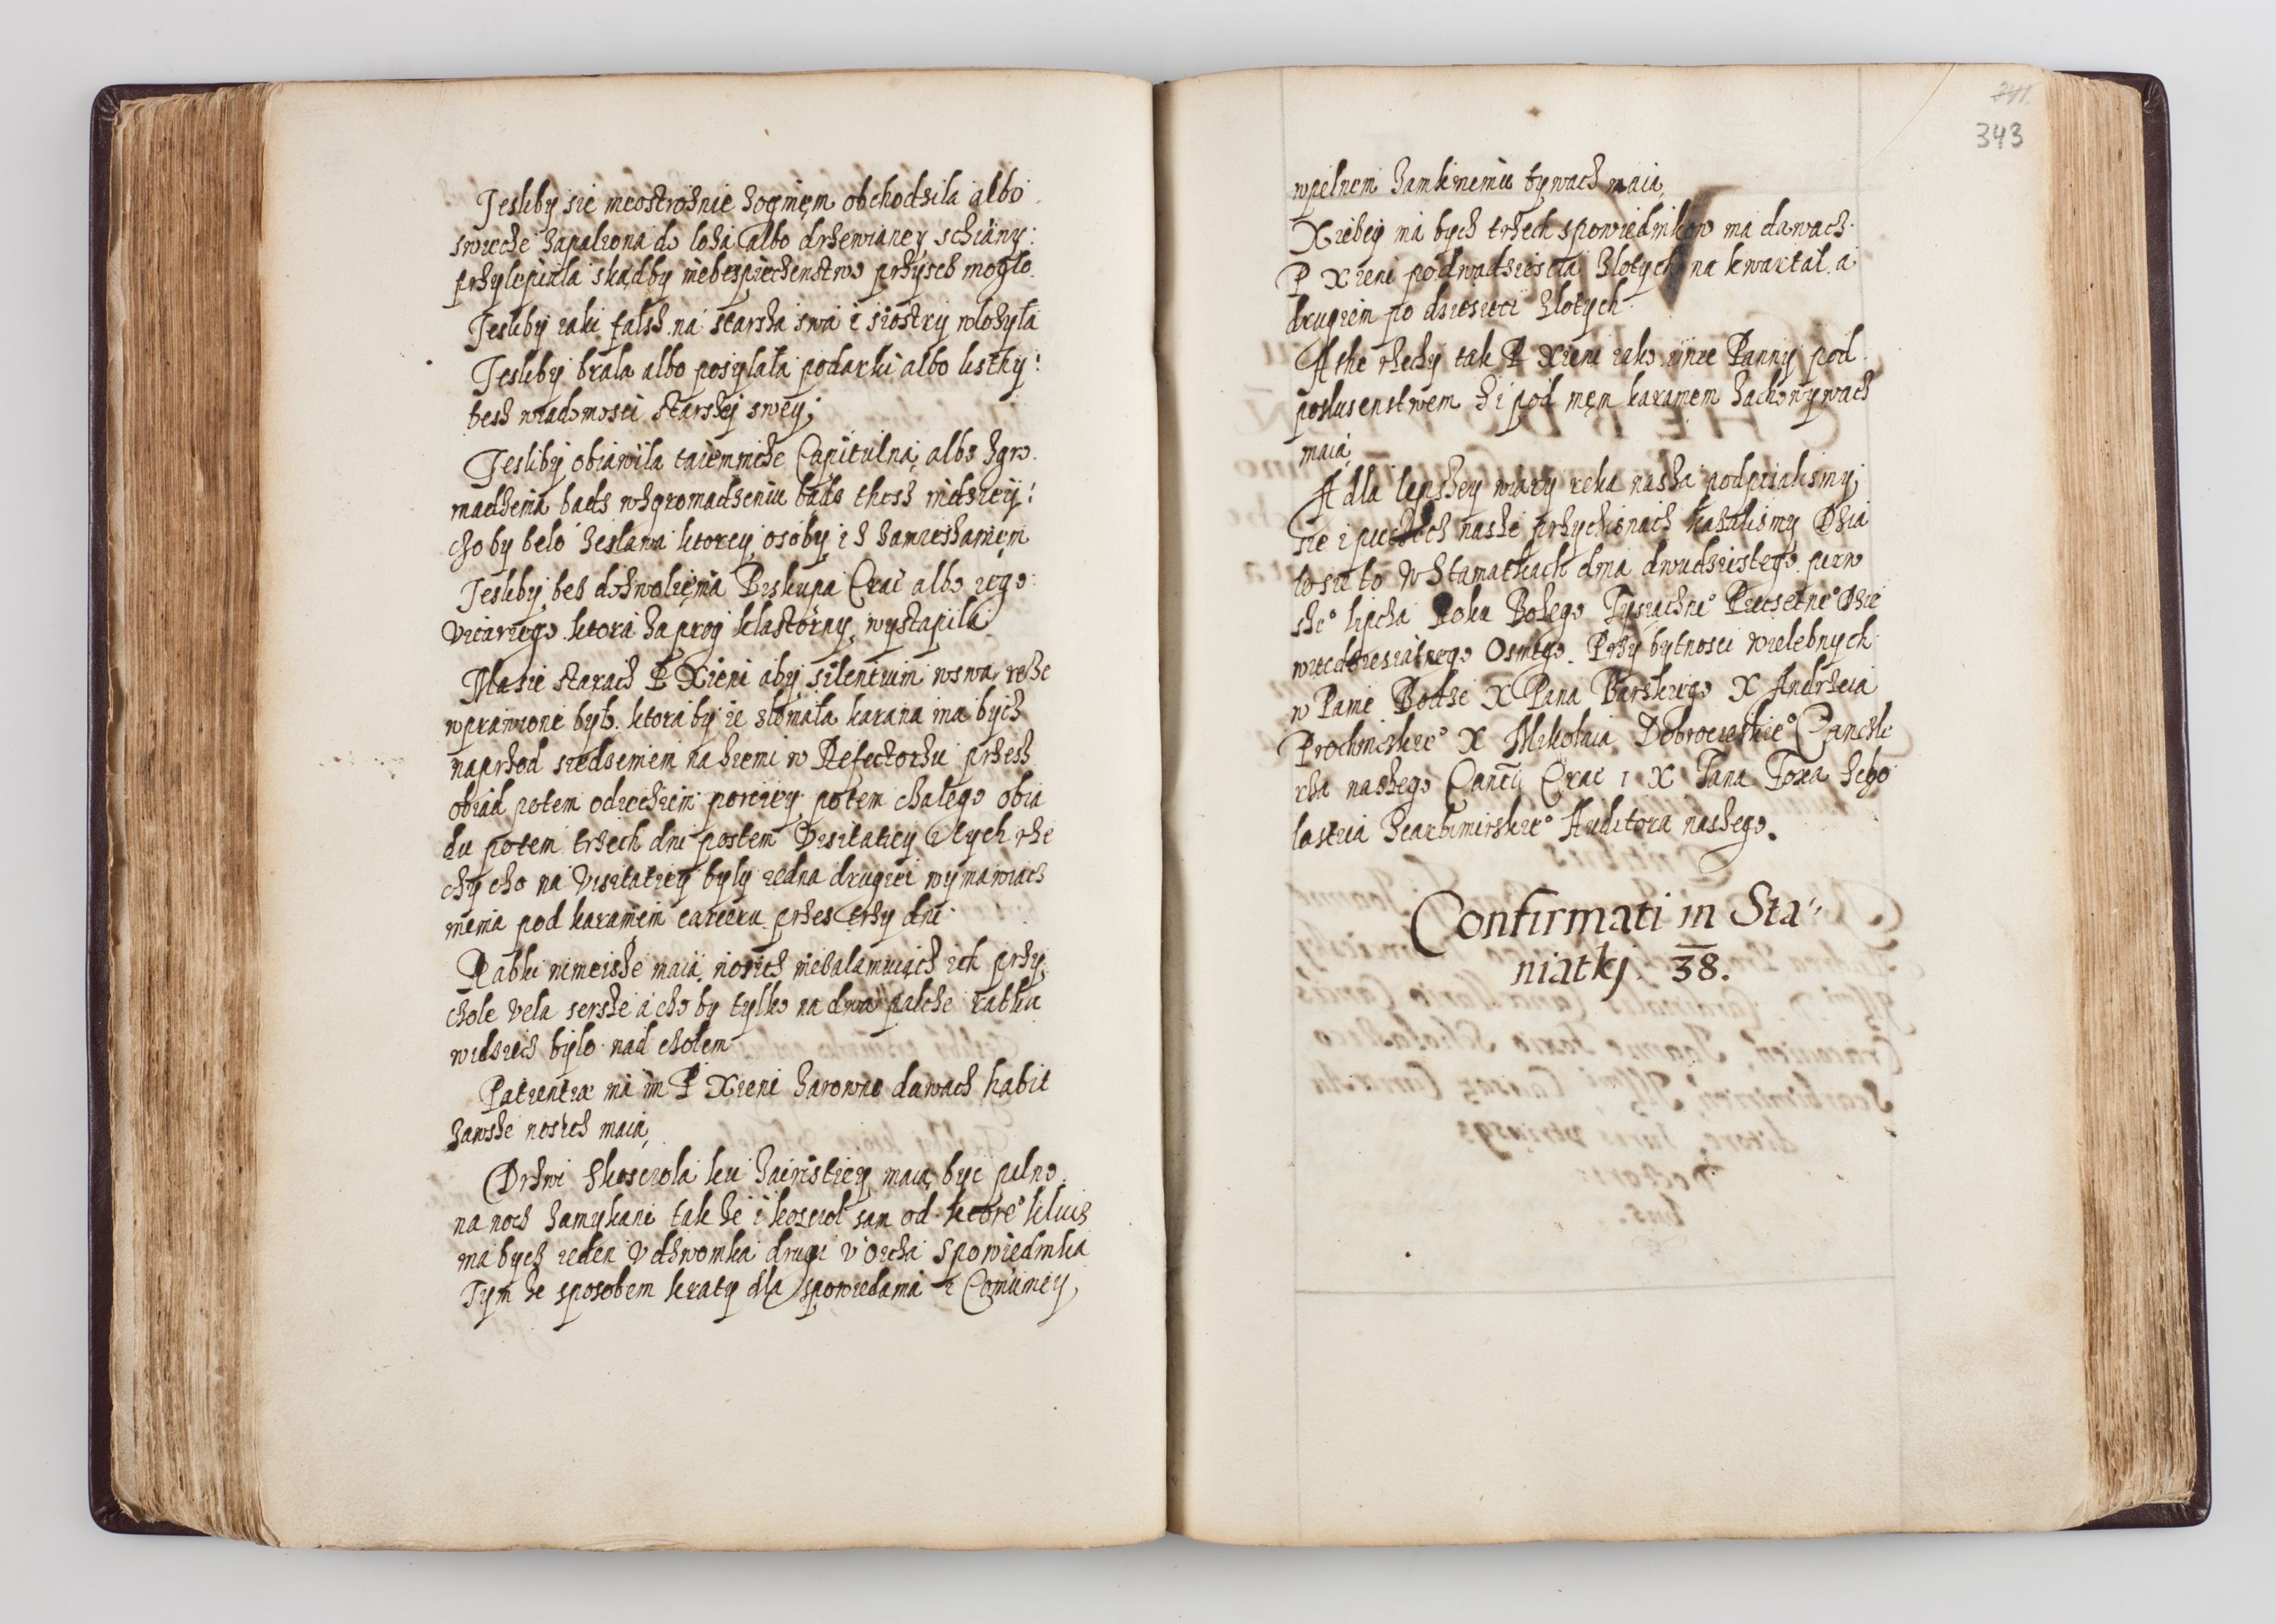 Jesliby sie nieostroznie zogniem obchodzila albo
swieche zapaliona do loza albo drzewianey schiany:
przylepiala skadby niebespiechenstwo przysch moglo
Jesliby iaki falsz na starsza swa i siostry wlozyla
Jesliby brala albo posylala podarki albo listky:
besz wiadomosci starszey swey;
Jesliby obiawila taiemniche Capitulna albo zgro
madzenia badz wzgromadzeniu badz thesz indziey:
cho by belo zeslania ktorey osoby i z zamieshaniem
Jesliby bes dozwolienia Biskupa Crac albo iego
Vicariego ktora za prog klastorny wystapila
Ma sie starach P Xieni aby silentium wswa reze
wprawione bylo ktora by ie zlomala karana ma bych
naprzod siedzeniem na ziemi w Refectorzu przesz
obiad potem odiechiem porciey potem chalego obia
du potem trzech dni postem Visitaciey Vtych rze
chy cho na Visitaciey byly iedna drugiei wymawiach
niema pod karaniem carceru przes trzy dni
Rabki nimeiske maia nosich niebalamuiach ich przy
chole vela sershe a cho by tylko na dwa palche rabku
widziech bylo nad cholem
Patientie ma im P Xieni zarowno dawach habit
zawshe nosich maia
Drzwi Skosciola ku zacristiey maia byc pilno
na noch zamykane tak ze i kosciol sam od ktore° kluch
ma bych ieden V dzwonka drugi v oycha Spowiednika
Tym ze sposobem kraty dla spowiedania i Comuniey
341.
343
wpelnem zamknieniu bywach maia
Xiebey ma bych trzech spowiednikow ma dawach
P Xieni podwadziescia zlotych na kwartal a
drugiem po dziesieci zlotych
A the rhechy tak P Xieni iako inne Panny pod
poslusenstwem z i pod niem karaniem zachowywach
maia
A dla lepszey wiary reka nasha podpisalismy
sie i piechech nashe przychisnach kazalismy Dzia
lo sie to W Stamatkach dnia dwudziestego pierw
she° lipcha Roku Bozego Tysiachne° Piecsetne° Dzie
wiecdziesiatnego Osmego. Przy bytnosci wielebnych
w Panie Bodze X Pana Barskiego X Andrzeia
Prochnickie° X Mikolaia Dobrocieskie° Canchle
rza nashego Canci Crac i X Jana Foxa Scho
lastria Scarbimirskie° Auditora nashego.
Confirmati in Sta"
niatkj. 38.